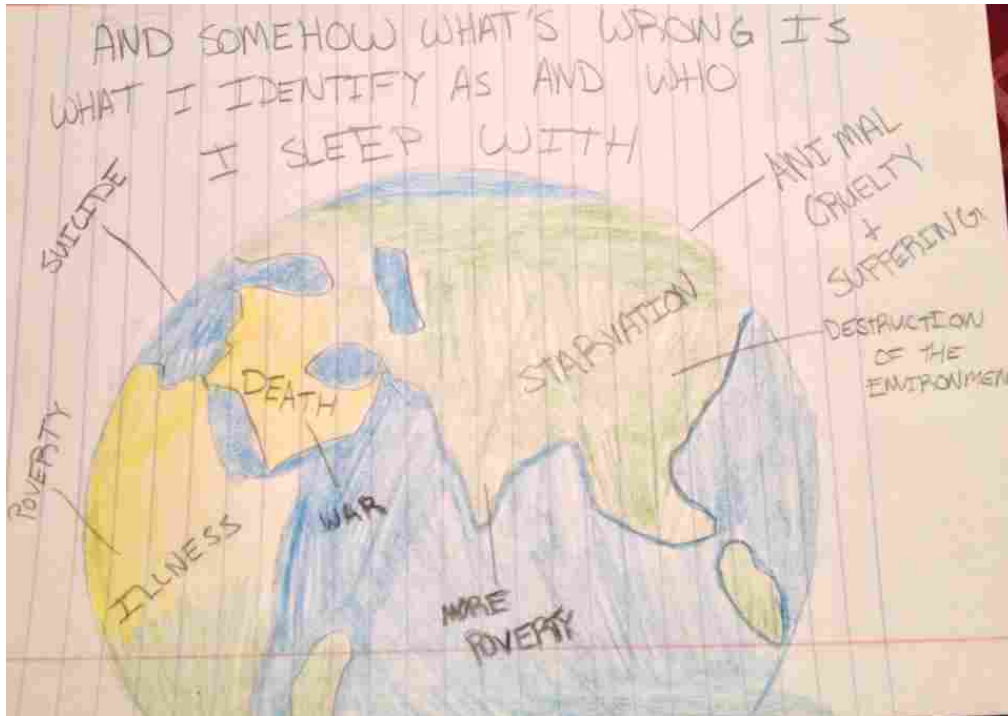 AND SOMEHOW WHAT'S WRONG IS
WHAT I IDENTIFY AS AND WHO
I SLEEP WITH
SUICIDE
ANIMAL
CRUELTY
+
SUFFERING
STARVATION
DESTRUCTION
OF THE
ENVIRONMEN
DEATH
POVERTY
WAR
ILLNESS
MORE
POVERTY